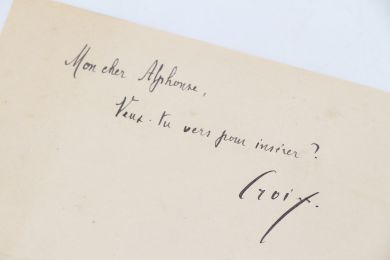 Mon cher Alphonse,
Veux-tu vers pour insérer ?
Croix.